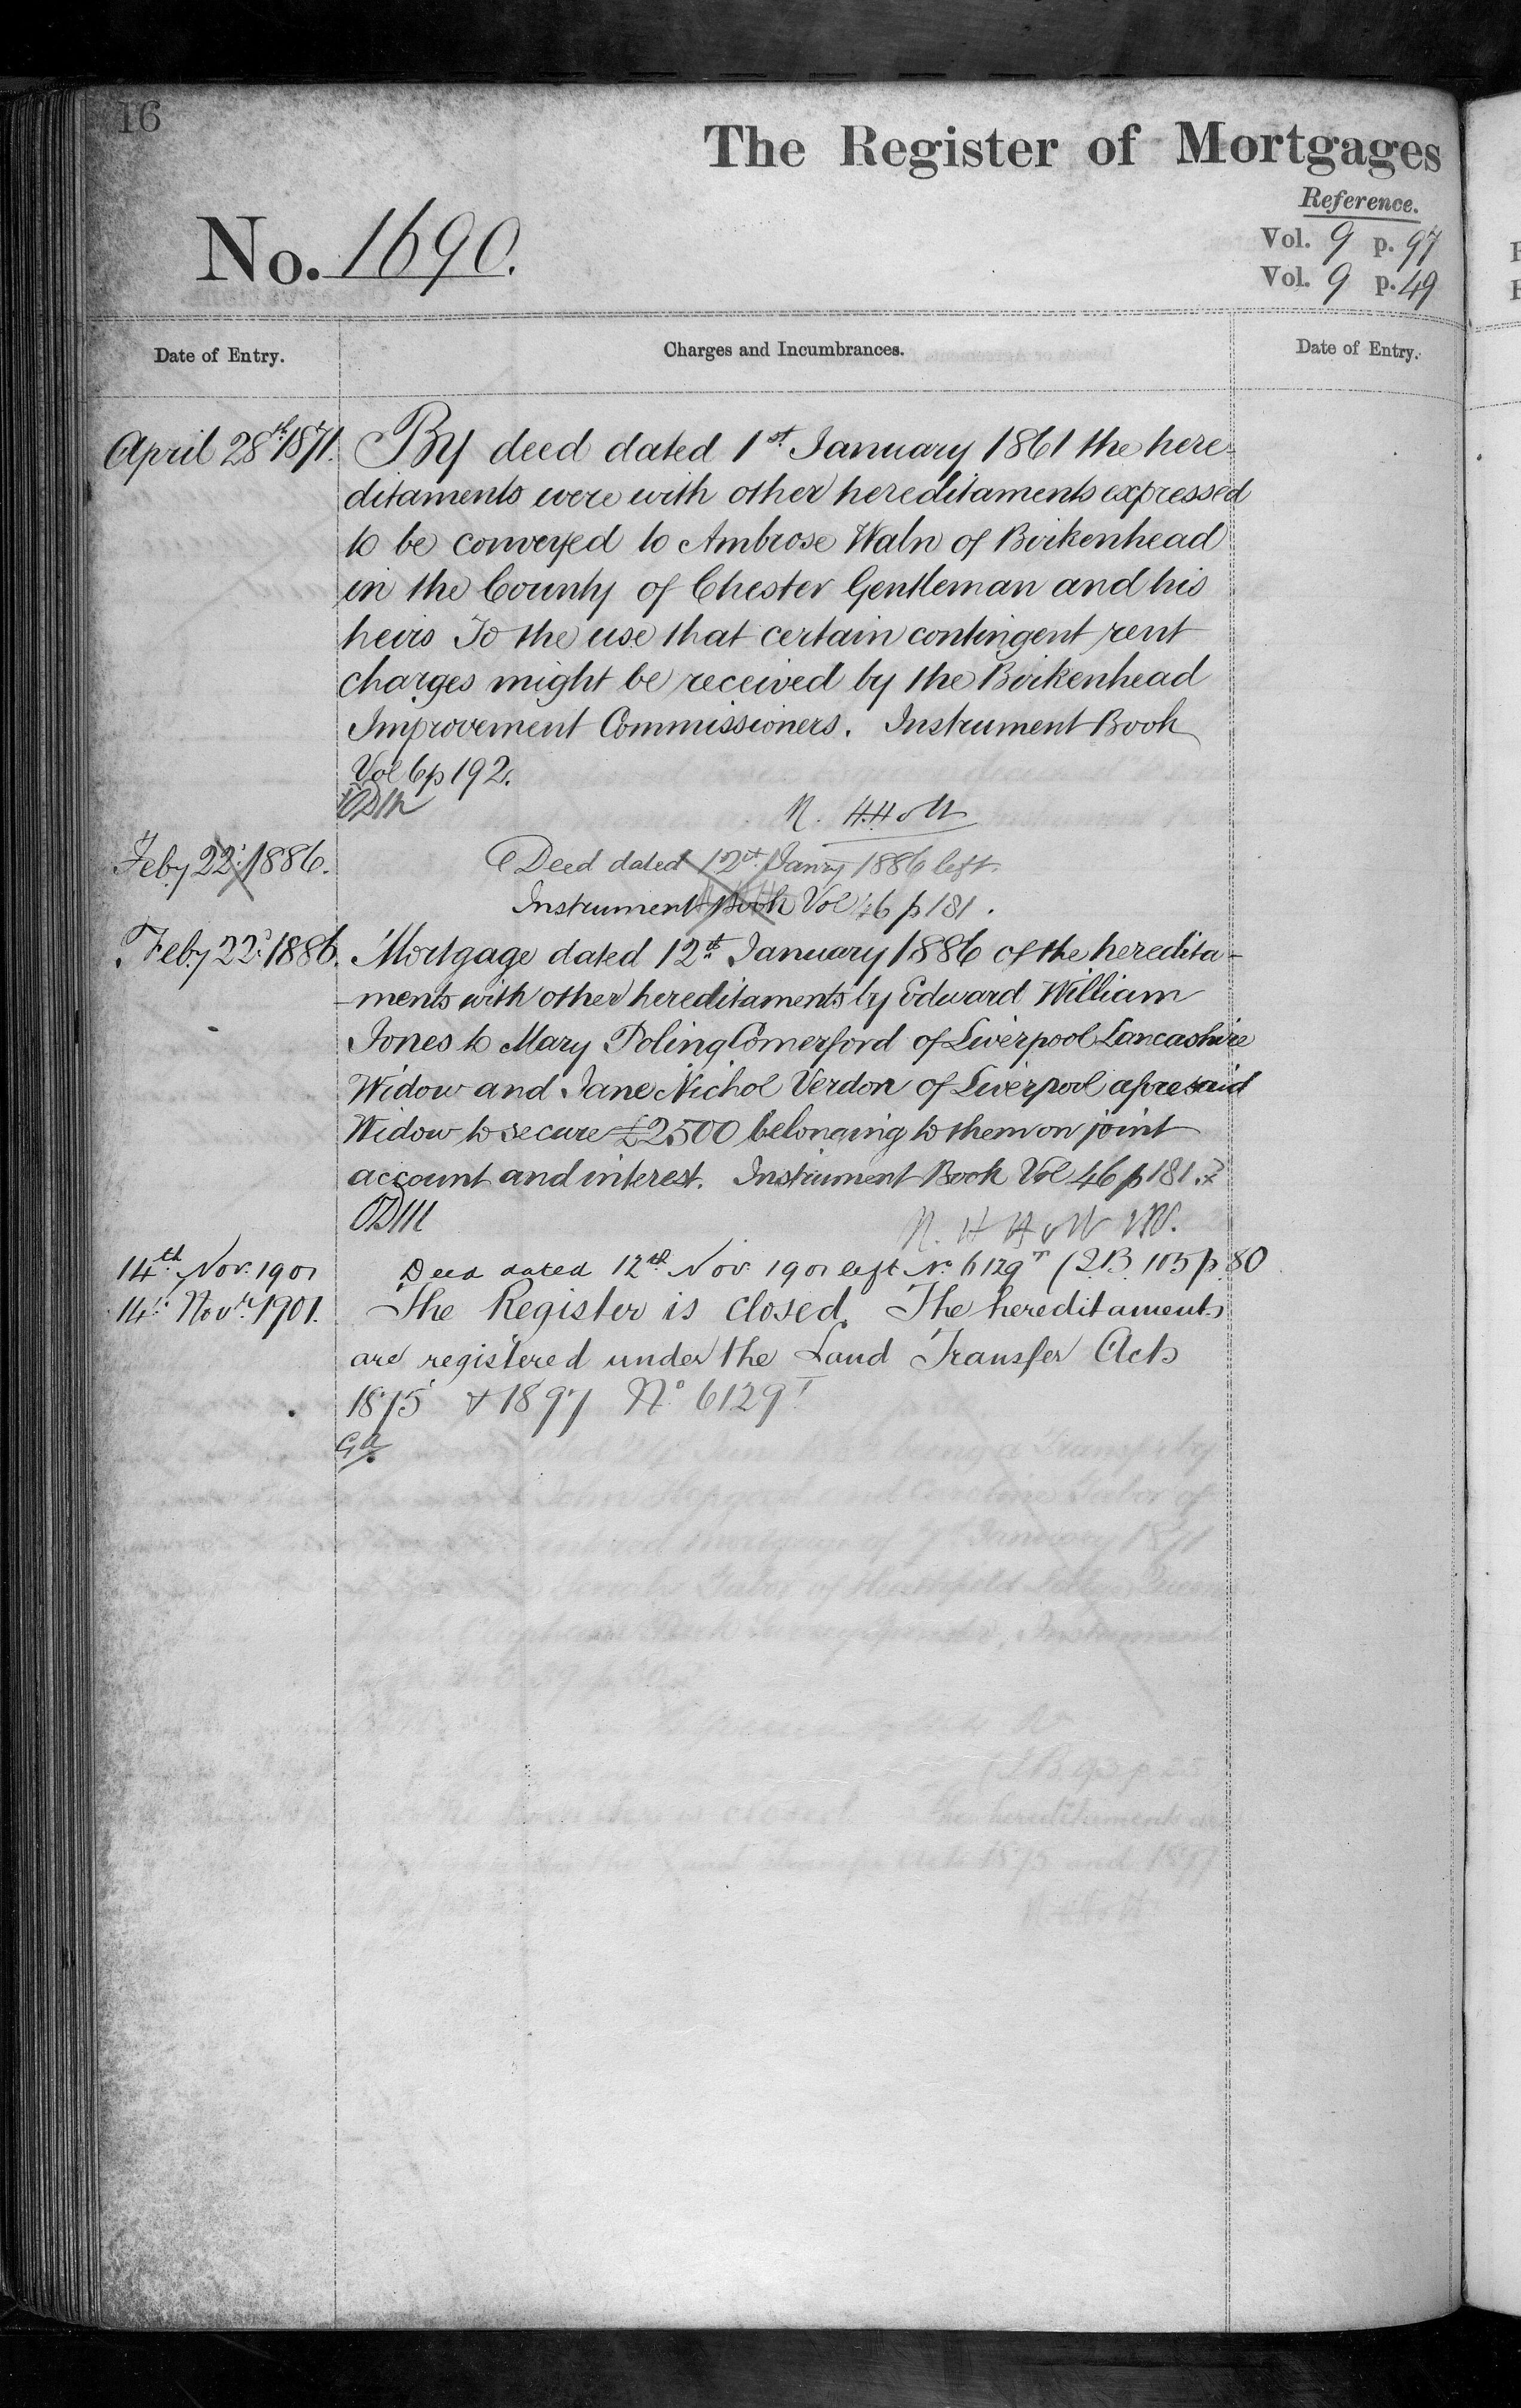 16
The Register of Mortgages
Reference.
No. 1690.
Vol. 9 p. 97
Vol. 9 p. 49
Date of Entry.
Charges and Incumbrances.
Date of Entry.
April 28th 1871. By deed dated 1st January 1861 the here-
ditaments were with other hereditaments expressed
to be conveyed to Ambrose Waln of Birkenhead
in the County of Chester Gentleman and his
heirs To the use that certain contingent rent
charges might be received by the Birkenhead
Improvement Commissioners. Instrument Book
Vol 6 p 192.
Feby 22d 1886. Deed dated 12th Janry 1886 left.
Instrument Book Vol 46 p 181.
Feby 22d 1886. Mortgage dated 12th January 1886 of the heredita-
-ments with other hereditaments by Edward William
Jones to Mary Poling Comerford of Liverpool Lancashire
Widow and Jane Nichol Verdon of Liverpool aforesaid
Widow to secure £2500 belonging to them on joint
account and interest. Instrument Book Vol 46 p 181.
14th Nov. 1901 Deed dated 12th Nov. 1901 left No 6129T 105 p. 80
14th Novr 1901. The Register is closed. The hereditaments
are registered under the Land Transfer Acts
1875 & 1897 No 6129T